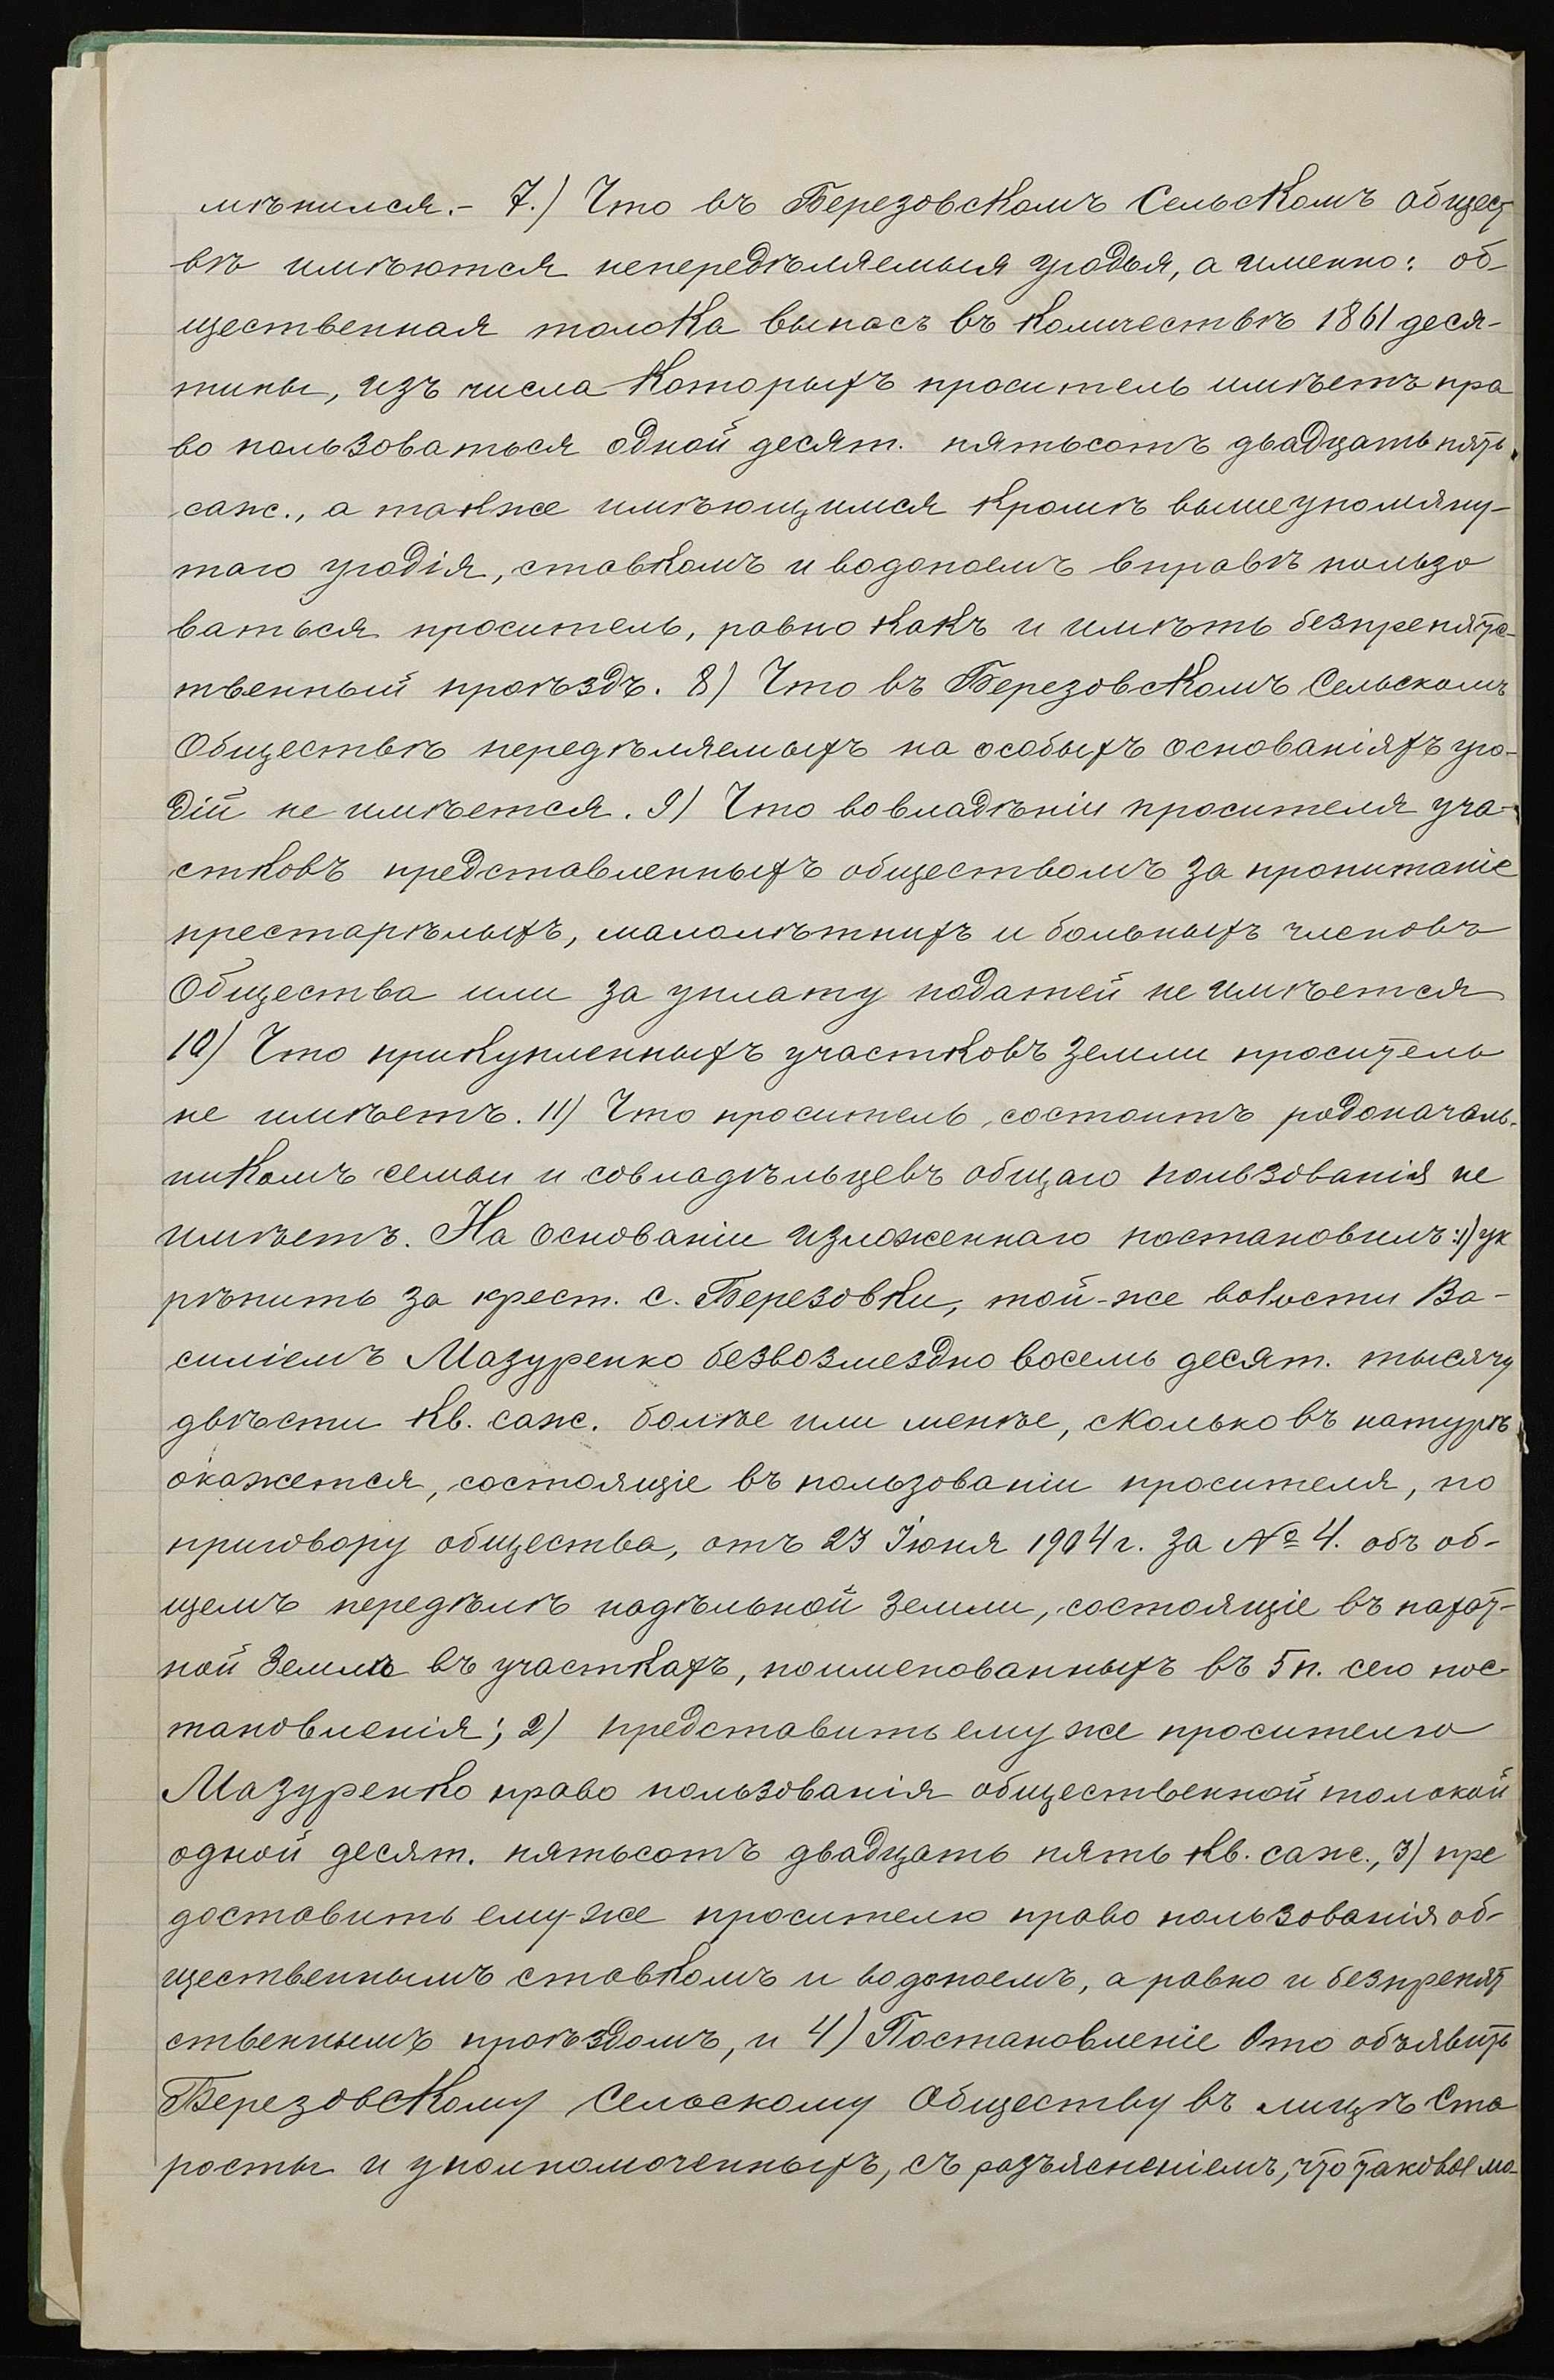 мѣнился.- 7.) Что въ Березовскомъ Сельскомъ общест
вѣ имѣются непередѣляемыя угодья, а именно: об-
щественная толока выпасъ въ количествѣ 1861 деся-
тины, изъ числа которыхъ проситель имѣетъ пра
во пользоваться одной десят. пятьсотъ двадцать пять
саж., а также имѣющимся кромѣ вышеупомяну-
таго угодія, ставкомъ и водопоемъ вправѣ пользо
ваться проситель, равно какъ и имѣть безпрепятс-
твенный проѣздъ. 8) Что въ Березовскомъ Сельскомъ
Обществѣ передѣляемыхъ на особыхъ основаніяхъ уго-
дій не имѣется. 9) Что во владѣніи просителя уча-
стковъ представленныхъ обществомъ за пропитаніе
престарѣлыхъ, малолѣтнихъ и больныхъ членовъ
Общества или за уплату податей не имѣется
10) Что прикупленныхъ участковъ земли проситель
не имѣетъ. 11) Что проситель, состоитъ родоначаль-
никомъ семьи и совладѣльцевъ общаго пользованія не
имѣетъ. На основаніи изложеннаго постановилъ: 1) ук
рѣпить за крест. с. Березовки, той-же волости Ва-
силіемъ Мазуренко безвозмездно восемь десят. тысячу
двѣсти кв. саж. болѣе или менѣе, сколько въ натурѣ
окажется, состоящіе въ пользованіи просителя, по
приговору общества, отъ 23 Іюня 1904 г. за № 4. объ об-
щемъ передѣлѣ надѣльной земли, состоящіе въ пахот-
ной землѣ въ участкахъ, поименованныхъ въ 5 п. сего пос-
тановленія; 2) представить ему же просителю
Мазуренко право пользованія общественной толокой
одной десят. пятьсотъ двадцать пять кв. саж., 3) пре
доставить ему-же просителю право пользованія об-
щественнымъ ставкомъ и водопоемъ, а равно и безпрепят
ственнымъ проѣздомъ, и 4) Постановленіе это объявить
Березовскому Сельскому Обществу въ лицѣ Ста
росты и уполномоченныхъ, съ разъясненіемъ, что таковое мо-